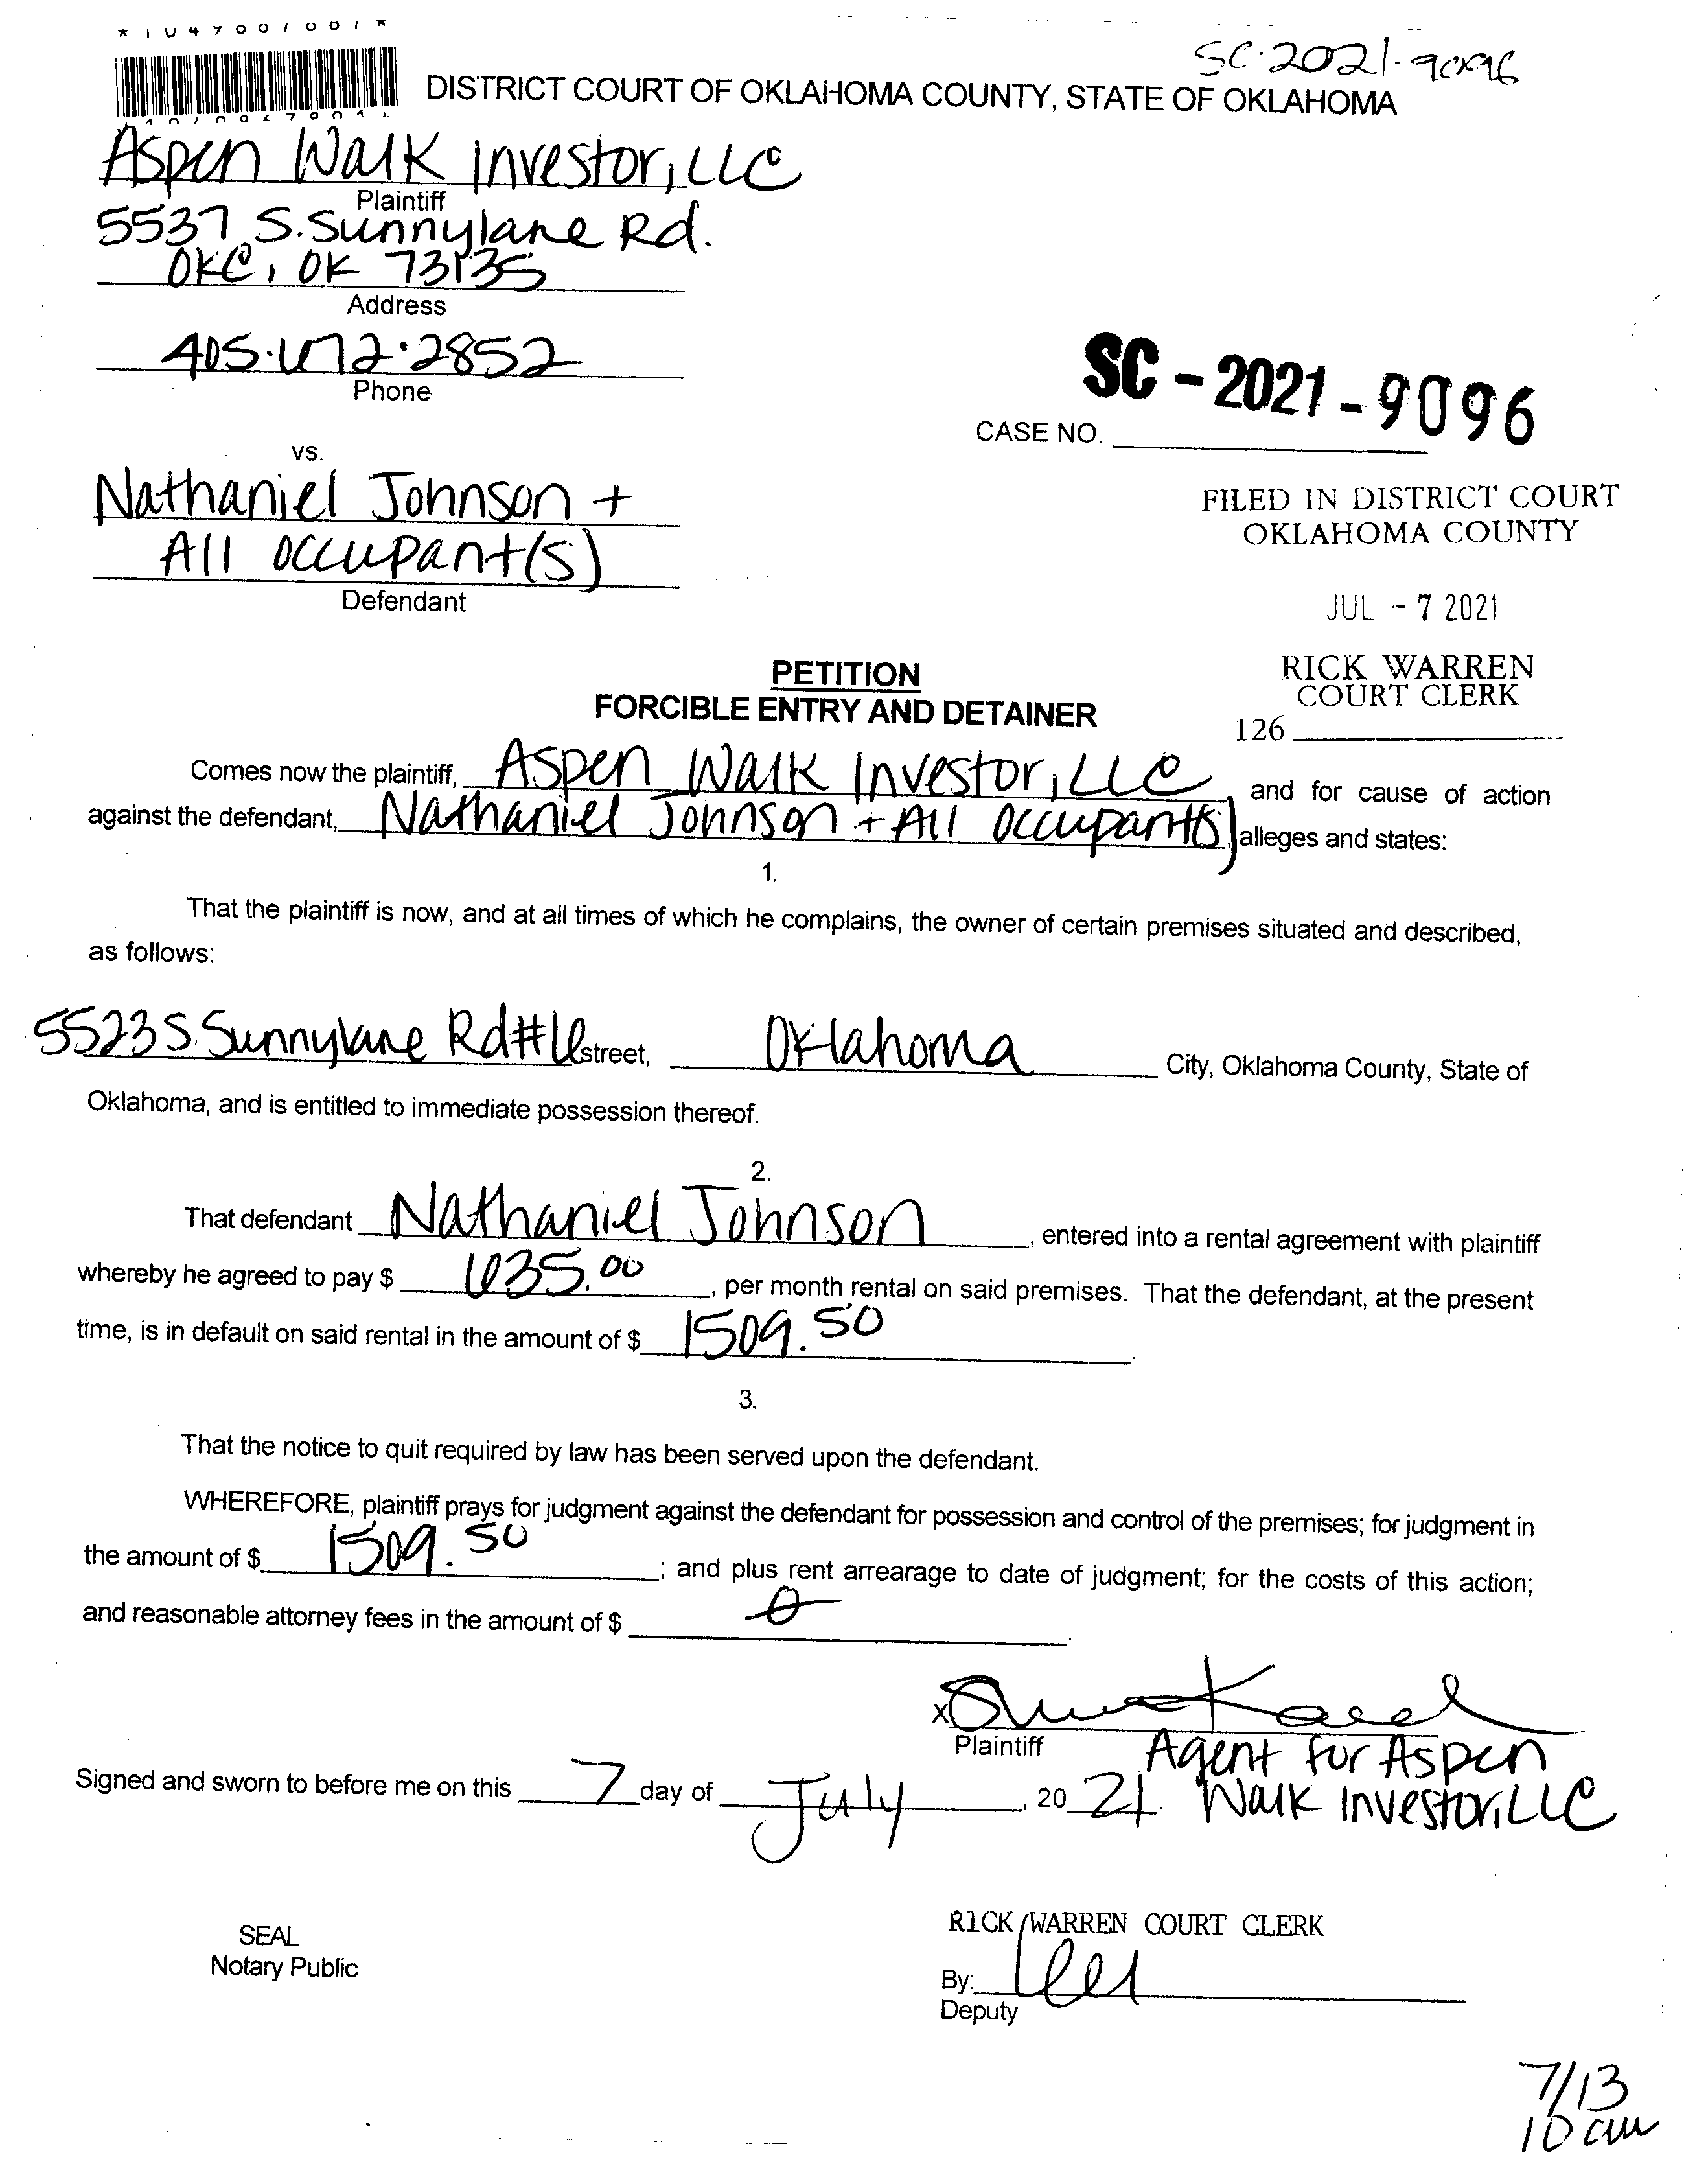 SC-2021-9096
DISTRICT COURT OF OKLAHOMA COUNTY, STATE OF OKLAHOMA
Aspen Walk Investor, LLC
Plaintiff
5537 S. Sunnylane Rd.
OKC, OK 73135
Address
405.672.2852
Phone
SC-2021-9096
CASE NO.
vs.
Nathaniel Johnson +
All occupant(s)
Defendant
FILED IN DISTRICT COURT
OKLAHOMA COUNTY
JUL - 7 2021
RICK WARREN
COURT CLERK
126
PETITION
FORCIBLE ENTRY AND DETAINER
Comes now the plaintiff, Aspen Walk Investor, LLC, and for cause of action
against the defendant, Nathaniel Johnson + All Occupant(s) alleges and states:
1.
That the plaintiff is now, and at all times of which he complains, the owner of certain premises situated and described,
as follows:
5523 S. Sunnylane Rd #6 street, Oklahoma City, Oklahoma County, State of
Oklahoma, and is entitled to immediate possession thereof.
2.
That defendant Nathaniel Johnson, entered into a rental agreement with plaintiff
whereby he agreed to pay $ 635.00, per month rental on said premises. That the defendant, at the present
time, is in default on said rental in the amount of $ 1509.50.
3.
That the notice to quit required by law has been served upon the defendant.
WHEREFORE, plaintiff prays for judgment against the defendant for possession and control of the premises; for judgment in
the amount of $ 1509.50; and plus rent arrearage to date of judgment; for the costs of this action;
and reasonable attorney fees in the amount of $ 0.
x
Plaintiff
Agent for Aspen
Walk Investor, LLC
Signed and sworn to before me on this 7 day of July, 2021.
SEAL
Notary Public
RICK WARREN COURT CLERK
By:
Deputy
7/13
10 am